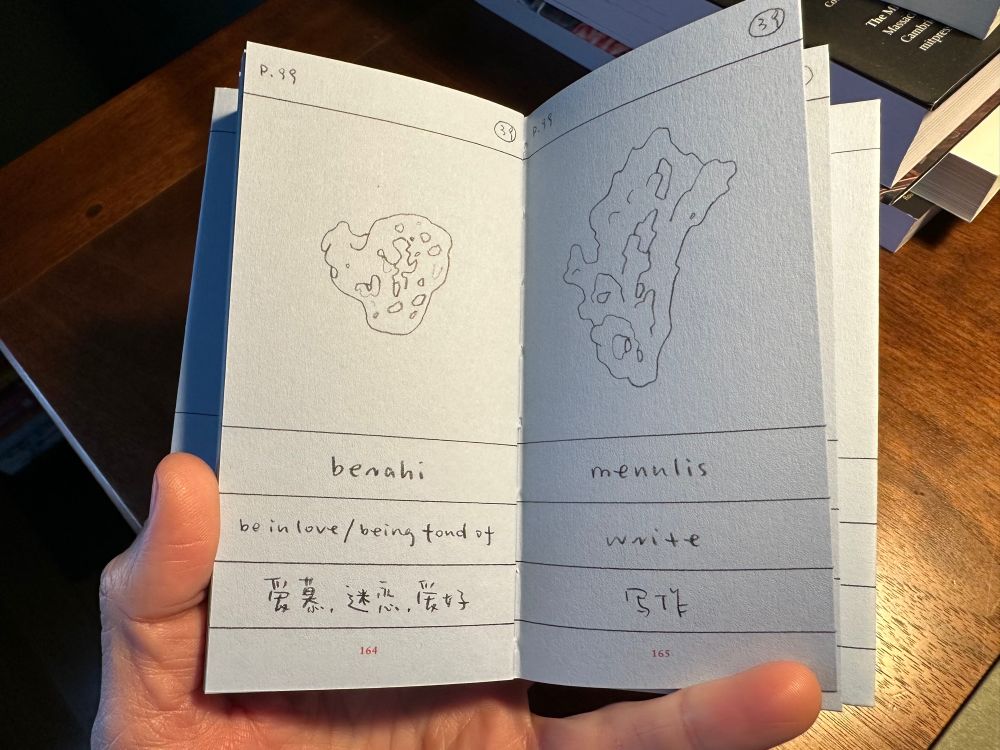 P.99
39
berahi
be in love/being fond of
爱慕，迷恋，爱好
164
39
P.99
menulis
write
写作
165
The M
Massac
Cambri
mitpres